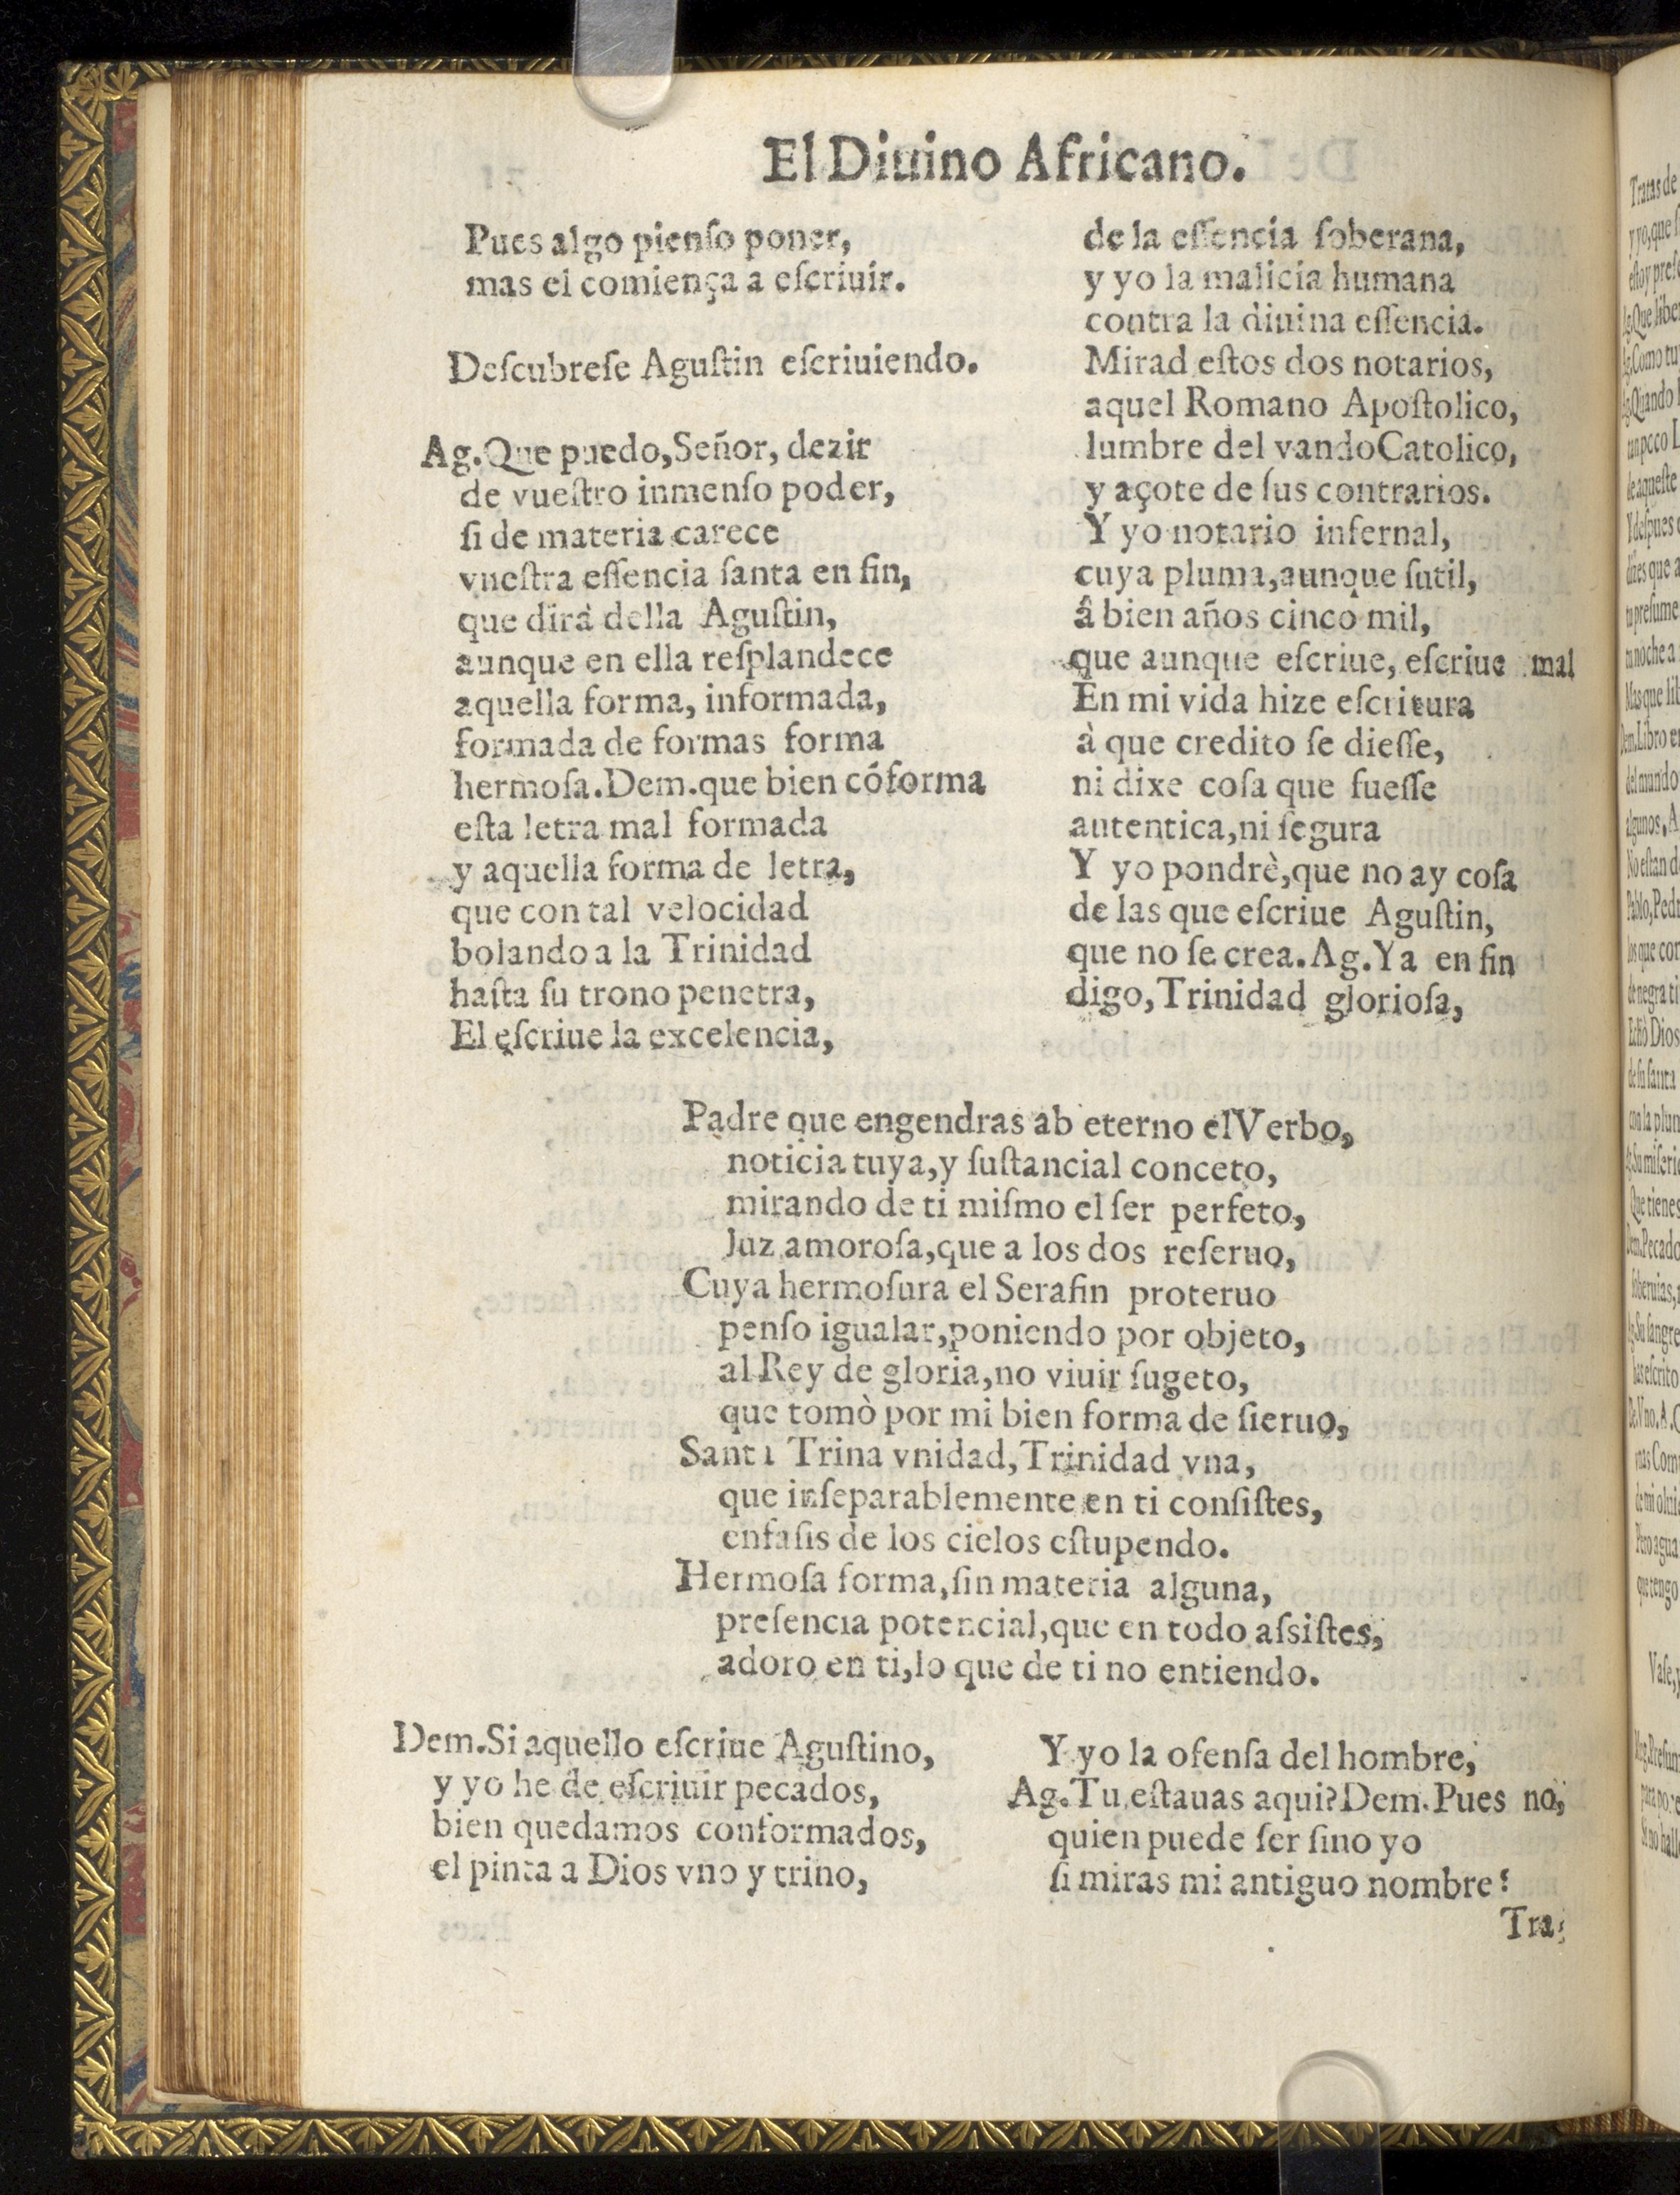 El Diuino Africano.
Pues algo pienſo poner,
mas el comiença a eſcriuir.
Deſcubreſe Aguſtin eſcriuiendo.
Ag.Que puedo,Señor, dezir
de vueſtro inmenſo poder,
ſi de materia carece
vueſtra eſſencia ſanta en fin,
que dirà della Aguſtin,
aunque en ella reſplandece
aquella forma, informada,
formada de formas forma
hermoſa.Dem.que bien cóforma
eſta letra mal formada
y aquella forma de letra,
que con tal velocidad
bolando a la Trinidad
haſta ſu trono penetra,
El eſcriue la excelencia,
de la eſſencia ſoberana,
y yo la malicia humana
contra la diuina eſſencia.
Mirad eſtos dos notarios,
aquel Romano Apoſtolico,
lumbre del vando Catolico,
y açote de ſus contrarios.
Y yo notario infernal,
cuya pluma,aunque ſutil,
â bien años cinco mil,
que aunque eſcriue, eſcriue mal
En mi vida hize eſcritura
à que credito ſe dieſſe,
ni dixe coſa que fueſſe
autentica,ni ſegura
Y yo pondrè,que no ay coſa
de las que eſcriue Aguſtin,
que no ſe crea.Ag.Ya en fin
digo,Trinidad glorioſa,
Padre que engendras ab eterno el Verbo,
noticia tuya,y ſuſtancial conceto,
mirando de ti miſmo el ſer perfeto,
luz amoroſa,que a los dos reſeruo,
Cuya hermoſura el Serafin proteruo
penſo igualar,poniendo por objeto,
al Rey de gloria,no viuir ſugeto,
que tomò por mi bien forma de ſieruo,
Santa Trina vnidad,Trinidad vna,
que inſeparablemente en ti conſiſtes,
enfaſis de los cielos eſtupendo.
Hermoſa forma,ſin materia alguna,
preſencia potencial,que en todo aſsiſtes,
adoro en ti,lo que de ti no entiendo.
Dem.Si aquello eſcriue Aguſtino,
y yo he de eſcriuir pecados,
bien quedamos conformados,
el pinta a Dios vno y trino,
Y yo la ofenſa del hombre,
Ag.Tu eſtauas aqui?Dem.Pues no,
quien puede ſer ſino yo
ſi miras mi antiguo nombre?
Tra-